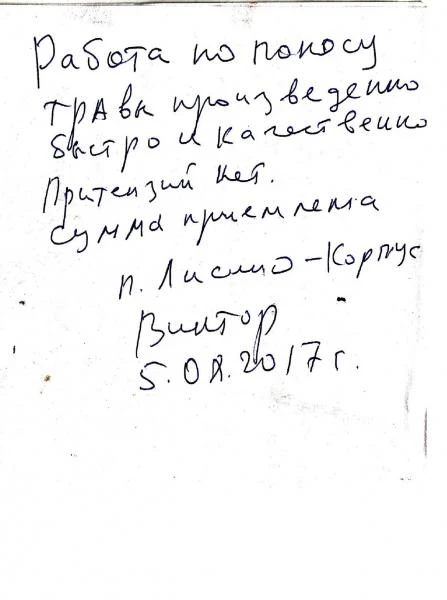 Работа по покосу
травы произведенно
быстро и качественно
Притензий нет.
Сумма приемлема
п. Лисино-Корпус
Виктор
5.08.2017г.